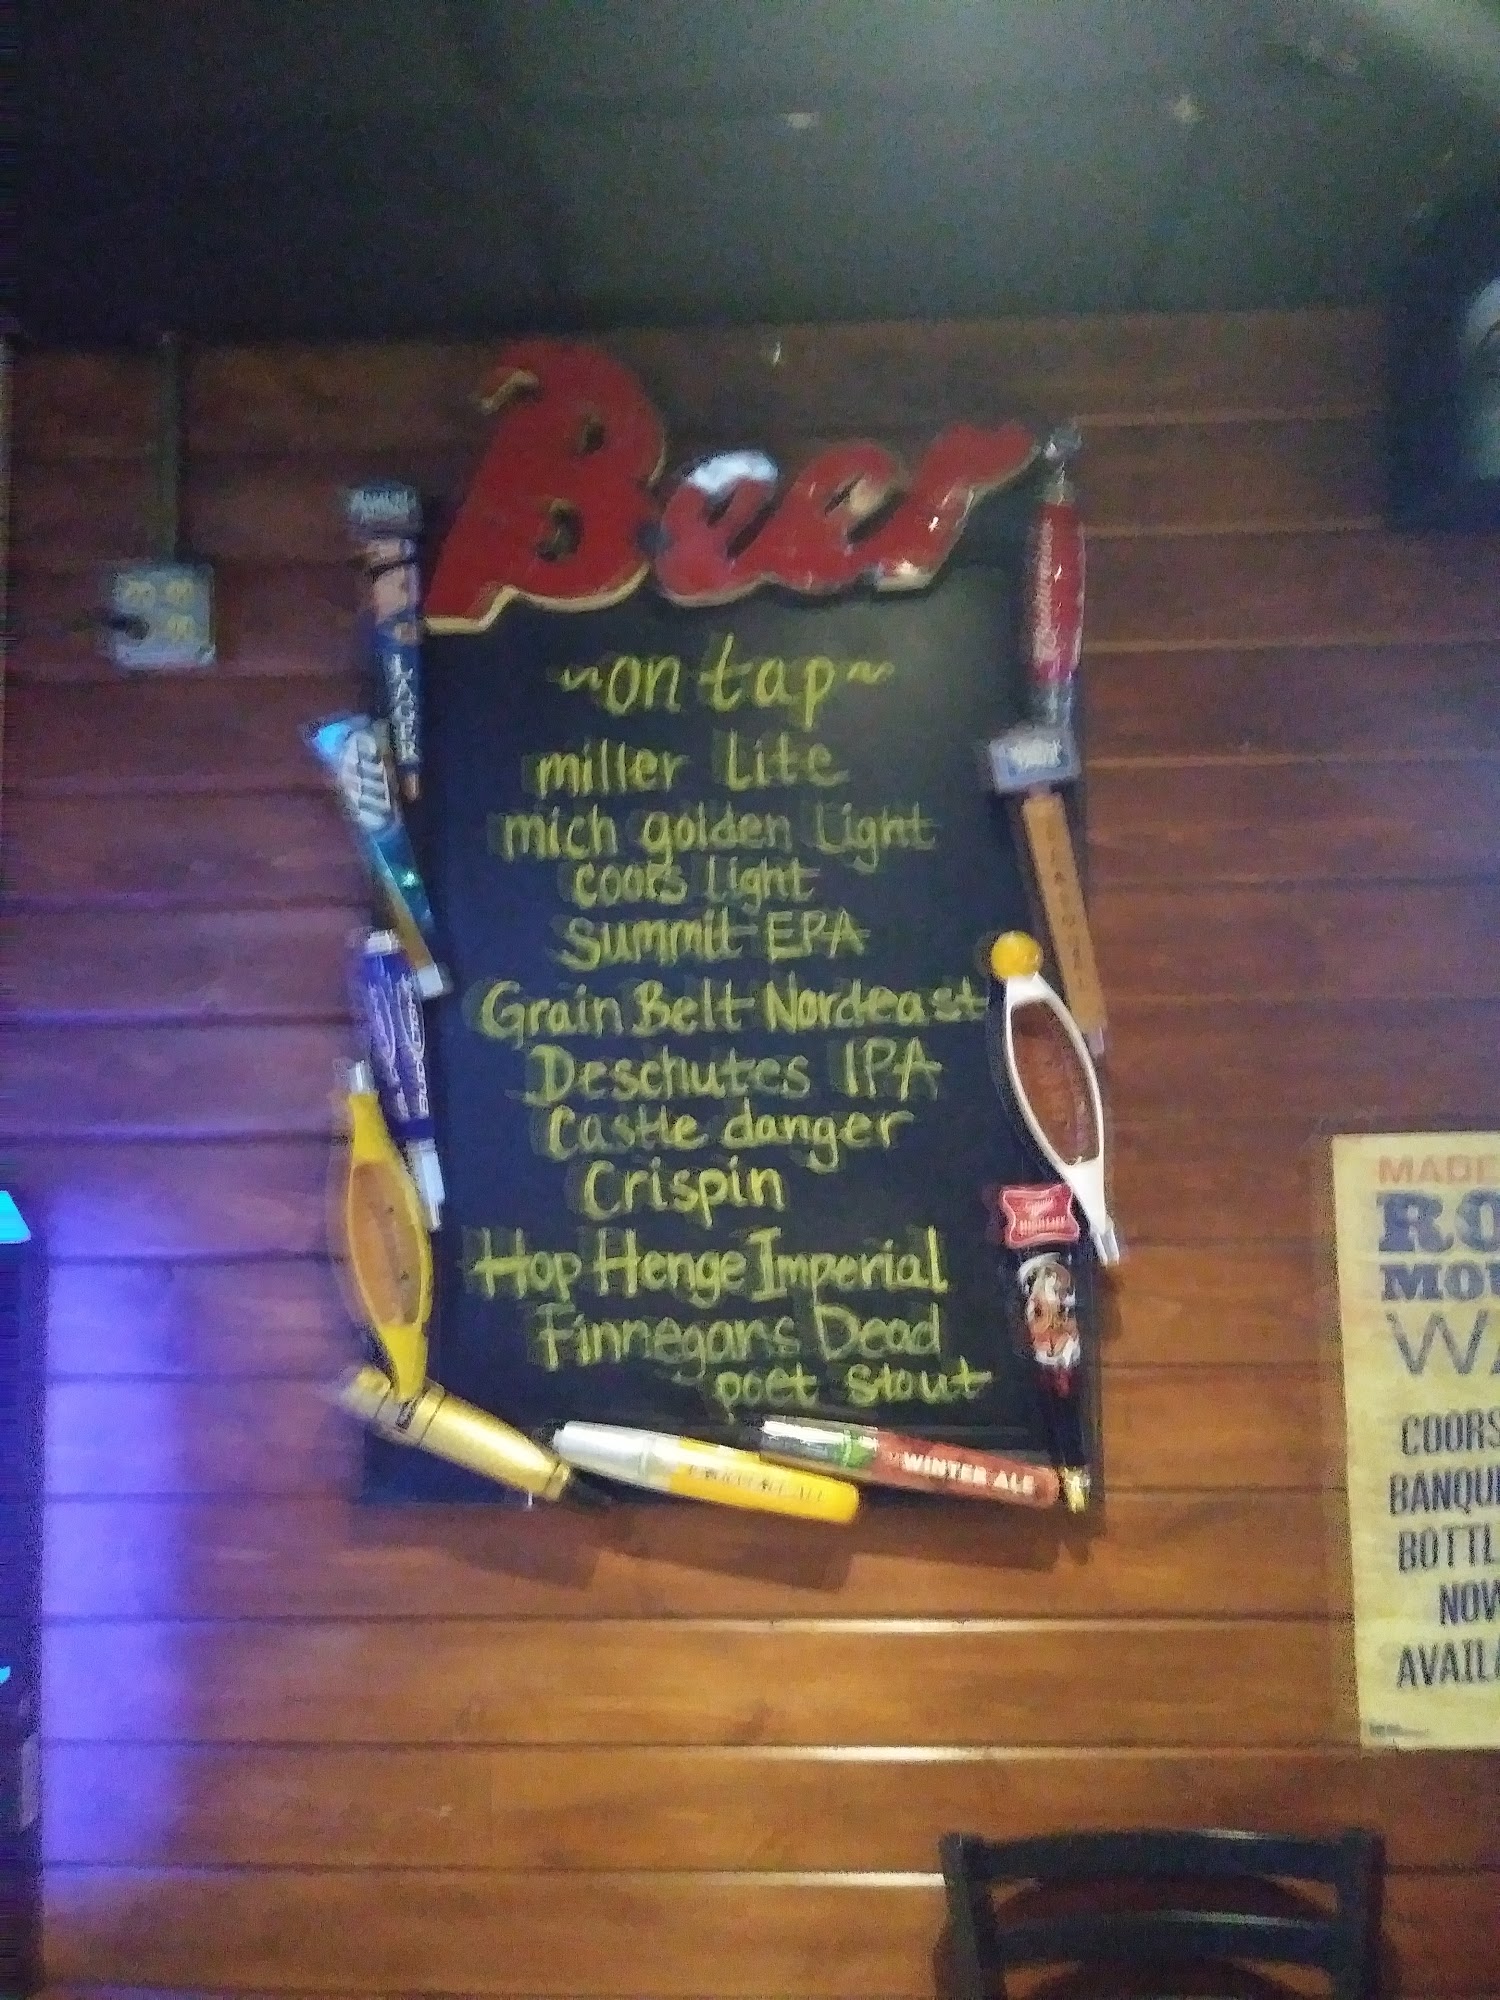 Beer
~on tap~
miller Lite
mich golden Light
coors Light
Summit EPA
Grain Belt Nordeast
Deschutes IPA
Castle danger
Crispin
Hop Henge Imperial
Finnegans Dead
poet stout
LAGER
SEASONAL
WINTER ALE
MADE
RO
MOU
WA
COORS
BANQU
BOTTL
NOW
AVAILA